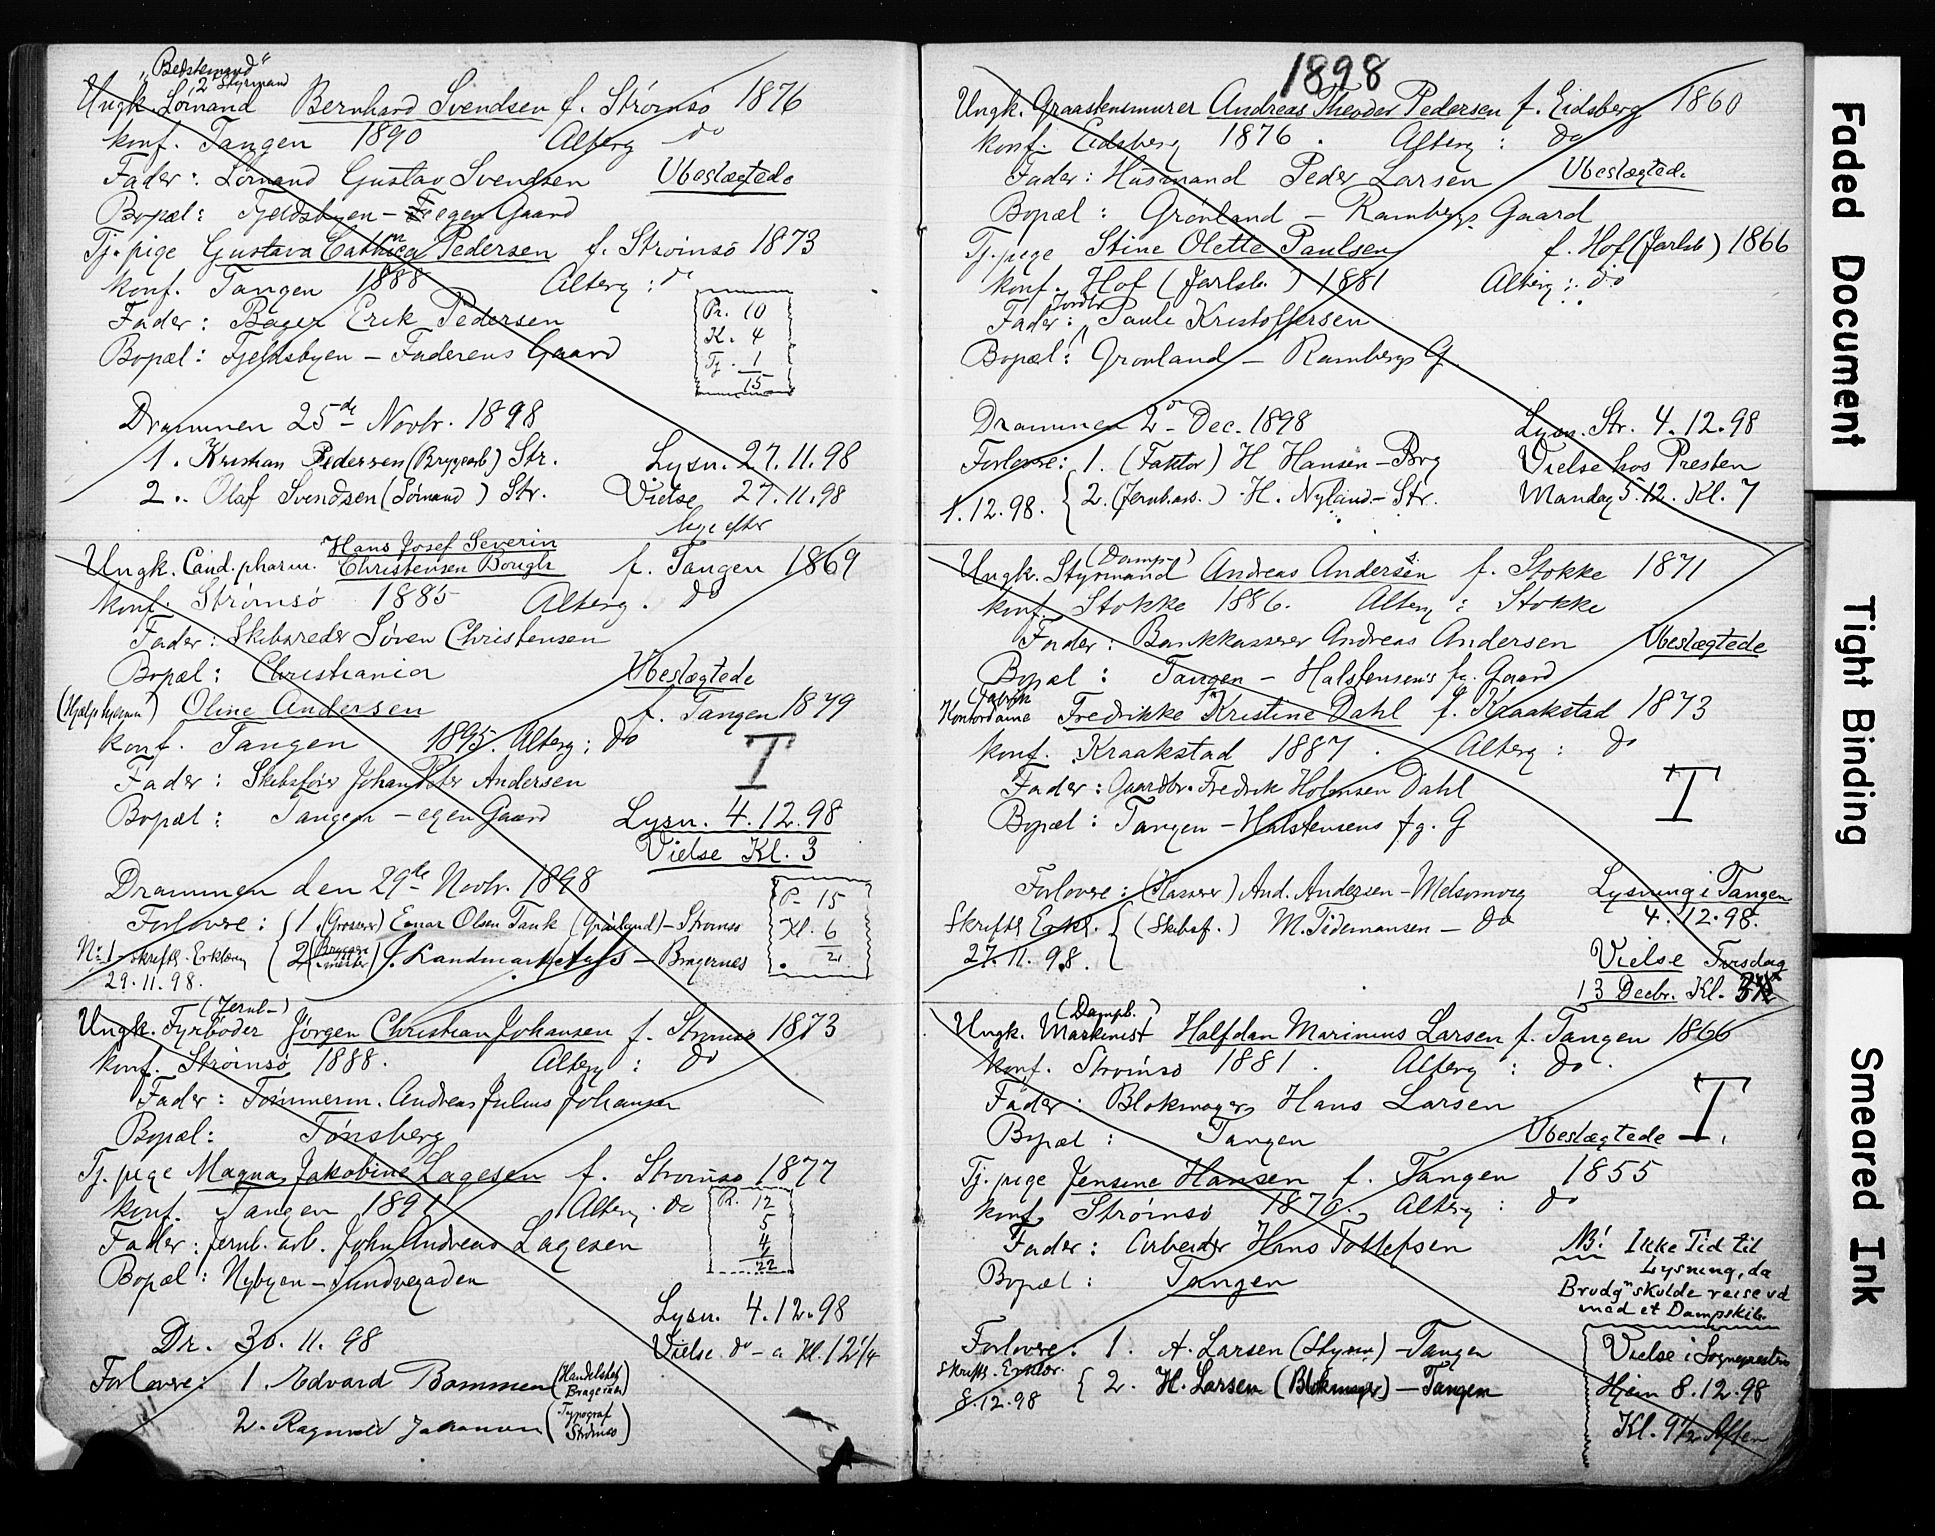 „Bedstemand"
2 Styrmand
Ungk. Sømand Bernhard Svendsen f. Strømsø 1876
konf. Tangen 1890 Altberg do
Fader: Sømand Gustav Svendsen Ubeslægtede
Bopæl: Fjeldsbyen – egen Gaard
Tj. pige Gustava Cathrea Pedersen f. Strømsø 1873
konf. Tangen 1888 Altberg: do
Fader: Bager Erik Pedersen
Bopæl: Fjeldsbyen – Faderens Gaard
Pr. 10
K. 4
Tj. 1
15
Drammen 25de Novbr. 1898
1. Kristian Pedersen (Bryggearb) Str. Lysn. 27.11.98
2. Olaf Svendsen (Sømand) Str. Vielse 27.11.98
lige efter
Hans Josef Severin
Ungk. Cand. pharm. Christensen Bough f. Tangen 1869
konf. Strømsø 1885 Altberg. do
Fader: Skibsreder Søren Christensen
Bopæl: Christiania Ubeslægtede
Oline Andersen f. Tangen 1879
konf. Tangen 1895. Altberg: do
T
Fader: Skibsfører Johan Peter Andersen
Bopæl: Tangen – egen Gaard Lysn. 4.12.98
Vielse Kl. 3
Drammen den 29de Novbr. 1898
P. 15
Kl. 6
2
Forlovre: 1. (Grosserer) Einar Olsen Tank (Grønland) – Strømsø
No 1 skriftl. Erklæring 2 (Bryggeri mester) – Bragernes
29.11.98.
(Jernb–)
Ungk. Fyrbøder Jørgen Christian Johansen f. Strømsø 1873
konf. Strømsø 1888. Altberg: do
Fader: Tømmerm. Andreas Julius Johansen
Bopæl: Tønsberg
Tj. pige Magna Jakobine Lagesen f. Strømsø 1877
konf. Tangen 1891 Altberg. do
Pr. 12
5
4
1
22
Fader: Jernb. arb. John Andreas Lagesen
Bopæl: Nybyen – Sundvegaden
Lysn. 4.12.98
Dr. 30.11.98 Vielse do – a Kl. 12 1/4
Forlovre: 1. Edvard Bommen (Handelsbet. Bragernæs)
2. Ragnvald Johansen (Typograf Strømsø)
1898
Ungk. Graastensmurer Andreas Theodor Pedersen f. Eidsberg 1860
konf. Eidsberg 1876. Altberg: do
Fader: Husmand Peder Larsen Ubeslægtede
Bopæl: Grønland – Rambergs Gaard
Tj. pige Stine Olette Paulsen f. Hof (Jarlsb) 1866
konf. Hof (Jarlsb.) 1881 Altberg: do
Fader: Jordbr Paule Kristoffersen
Bopæl: Grønland – Rambergs G.
Drammen 2 Dec. 1898 Lysn. Str. 4.12.98
Forlovre: 1. (Faktor) H Hansen – Brg Vielse hos Presten
1.12.98. 2. (Jernb.arb.) H. Nyland – Str. Mandag 5.12. Kl. 7
(Damp–)
Ungk. Styrmand Andreas Andersen f. Stokke 1871
konf. Stokke 1886. Altberg: Stokke
Fader: Bankkasserer Andreas Andersen Ubeslægtede
Bopæl: Tangen – Halstensens fg. Gaard
(Fabrik
Kontordame Fredrikke Kristine Dahl f. Kraakstad 1873
konf. Kraakstad 1887. Altberg: do
Fader: Gaardbr. Fredrik Holmsen Dahl
T
Bopæl: Tangen – Halstensens fg. G
Forlovre: (Kasserer) And. Andersen – Melsomvig Lysning i Tangen
4.12.98.
Skriftl. Erkl. (Skibsf.) M. Tidemansen – do
27.11.98. Vielse Tirsdag
13 Decbr. Kl.
(Dampb.)
Ungk. Maskinist Halfdan Marinius Larsen f. Tangen 1866
konf. Strømsø 1881. Altberg: do.
Fader: Blokmager Hans Larsen
T.
Bopæl: Tangen Ubeslægtede
Tj. pige Jensine Hansen f. Tangen 1855
konf. Strømsø 1870. Altberg: do
Fader: Arbeider Hans Tollefsen
Bopæl: Tangen
NB! Ikke Tid til
Lysning, da
Brudgm skulde reise ud
med et Dampskib
Forlovre: 1. A. Larsen (Styrm) – Tangen Vielse i Sognepresten
Skriftl. Erklær. 2. H. Larsen (Blokmager) – Tangen Hjem 8.12.98
8.12.98 Kl. 9 1/2 Aften
Faded Document
Tight Binding
Smeared Ink